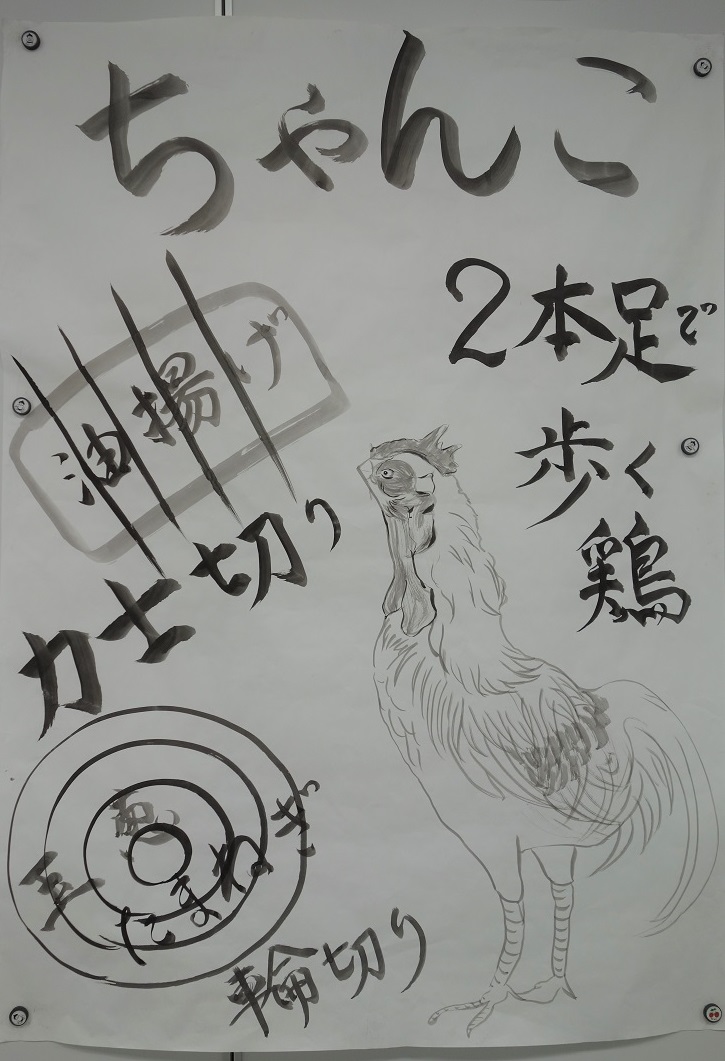 ちゃんこ
2本足で
歩く鶏
油揚げ
力士切り
玉葱
たまねぎ
輪切り